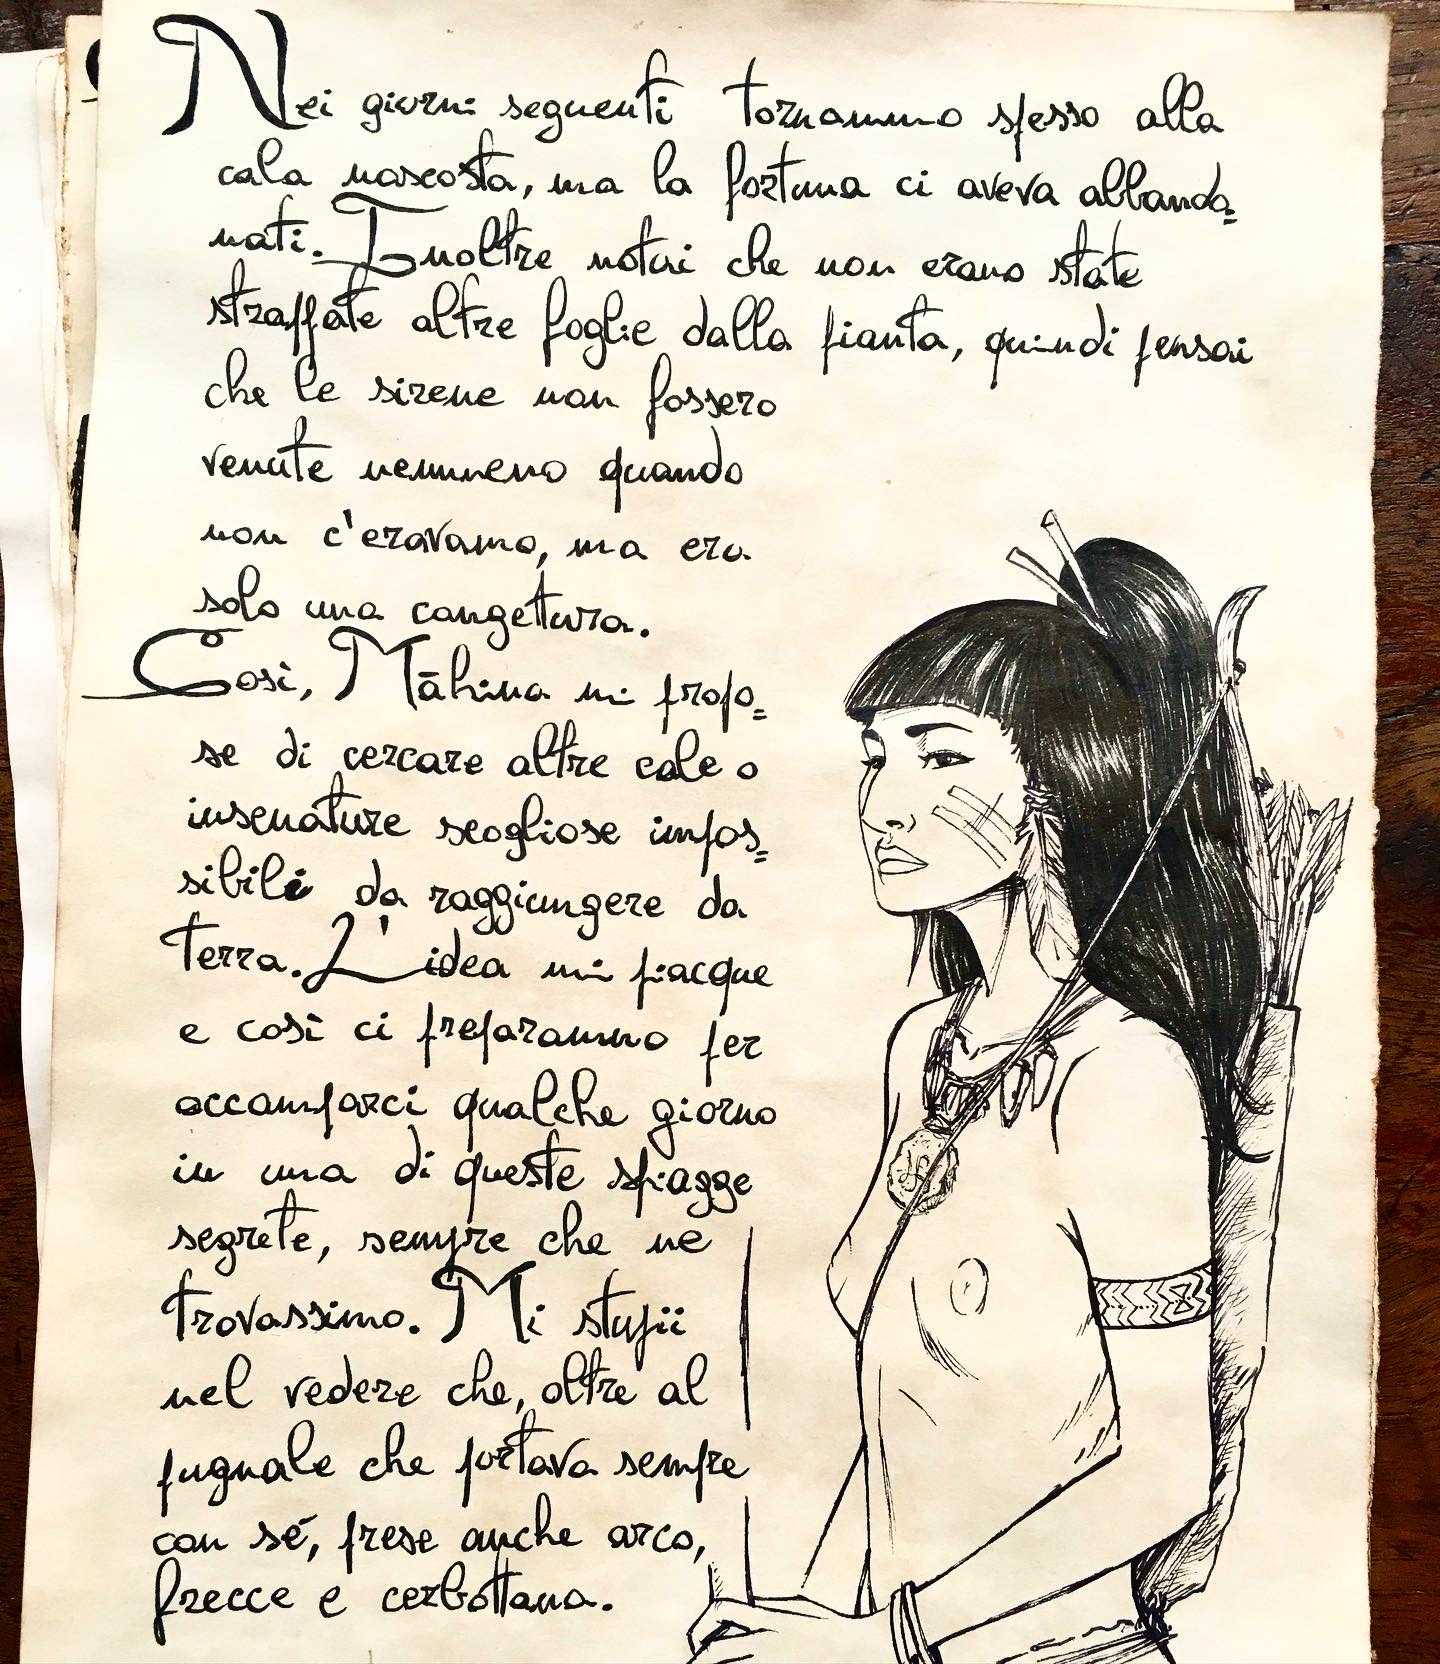 Nei giorni seguenti tornammo spesso alla
cala nascosta, ma la fortuna ci aveva abbando=
nati. Inoltre notai che non erano state
strappate altre foglie dalla pianta, quindi pensai
che le sirene non fossero
venute nemmeno quando
non c'eravamo, ma era
solo una congettura.
Così, Māhina mi propo=
se di cercare altre cale o
insenature scogliose impos=
sibili da raggiungere da
terra. L'idea mi piacque
e così ci preparammo per
accamparci qualche giorno
in una di queste spiagge
segrete, sempre che ne
trovassimo. Mi stupii
nel vedere che, oltre al
pugnale che portava sempre
con sé, prese anche arco,
frecce e cerbottana.